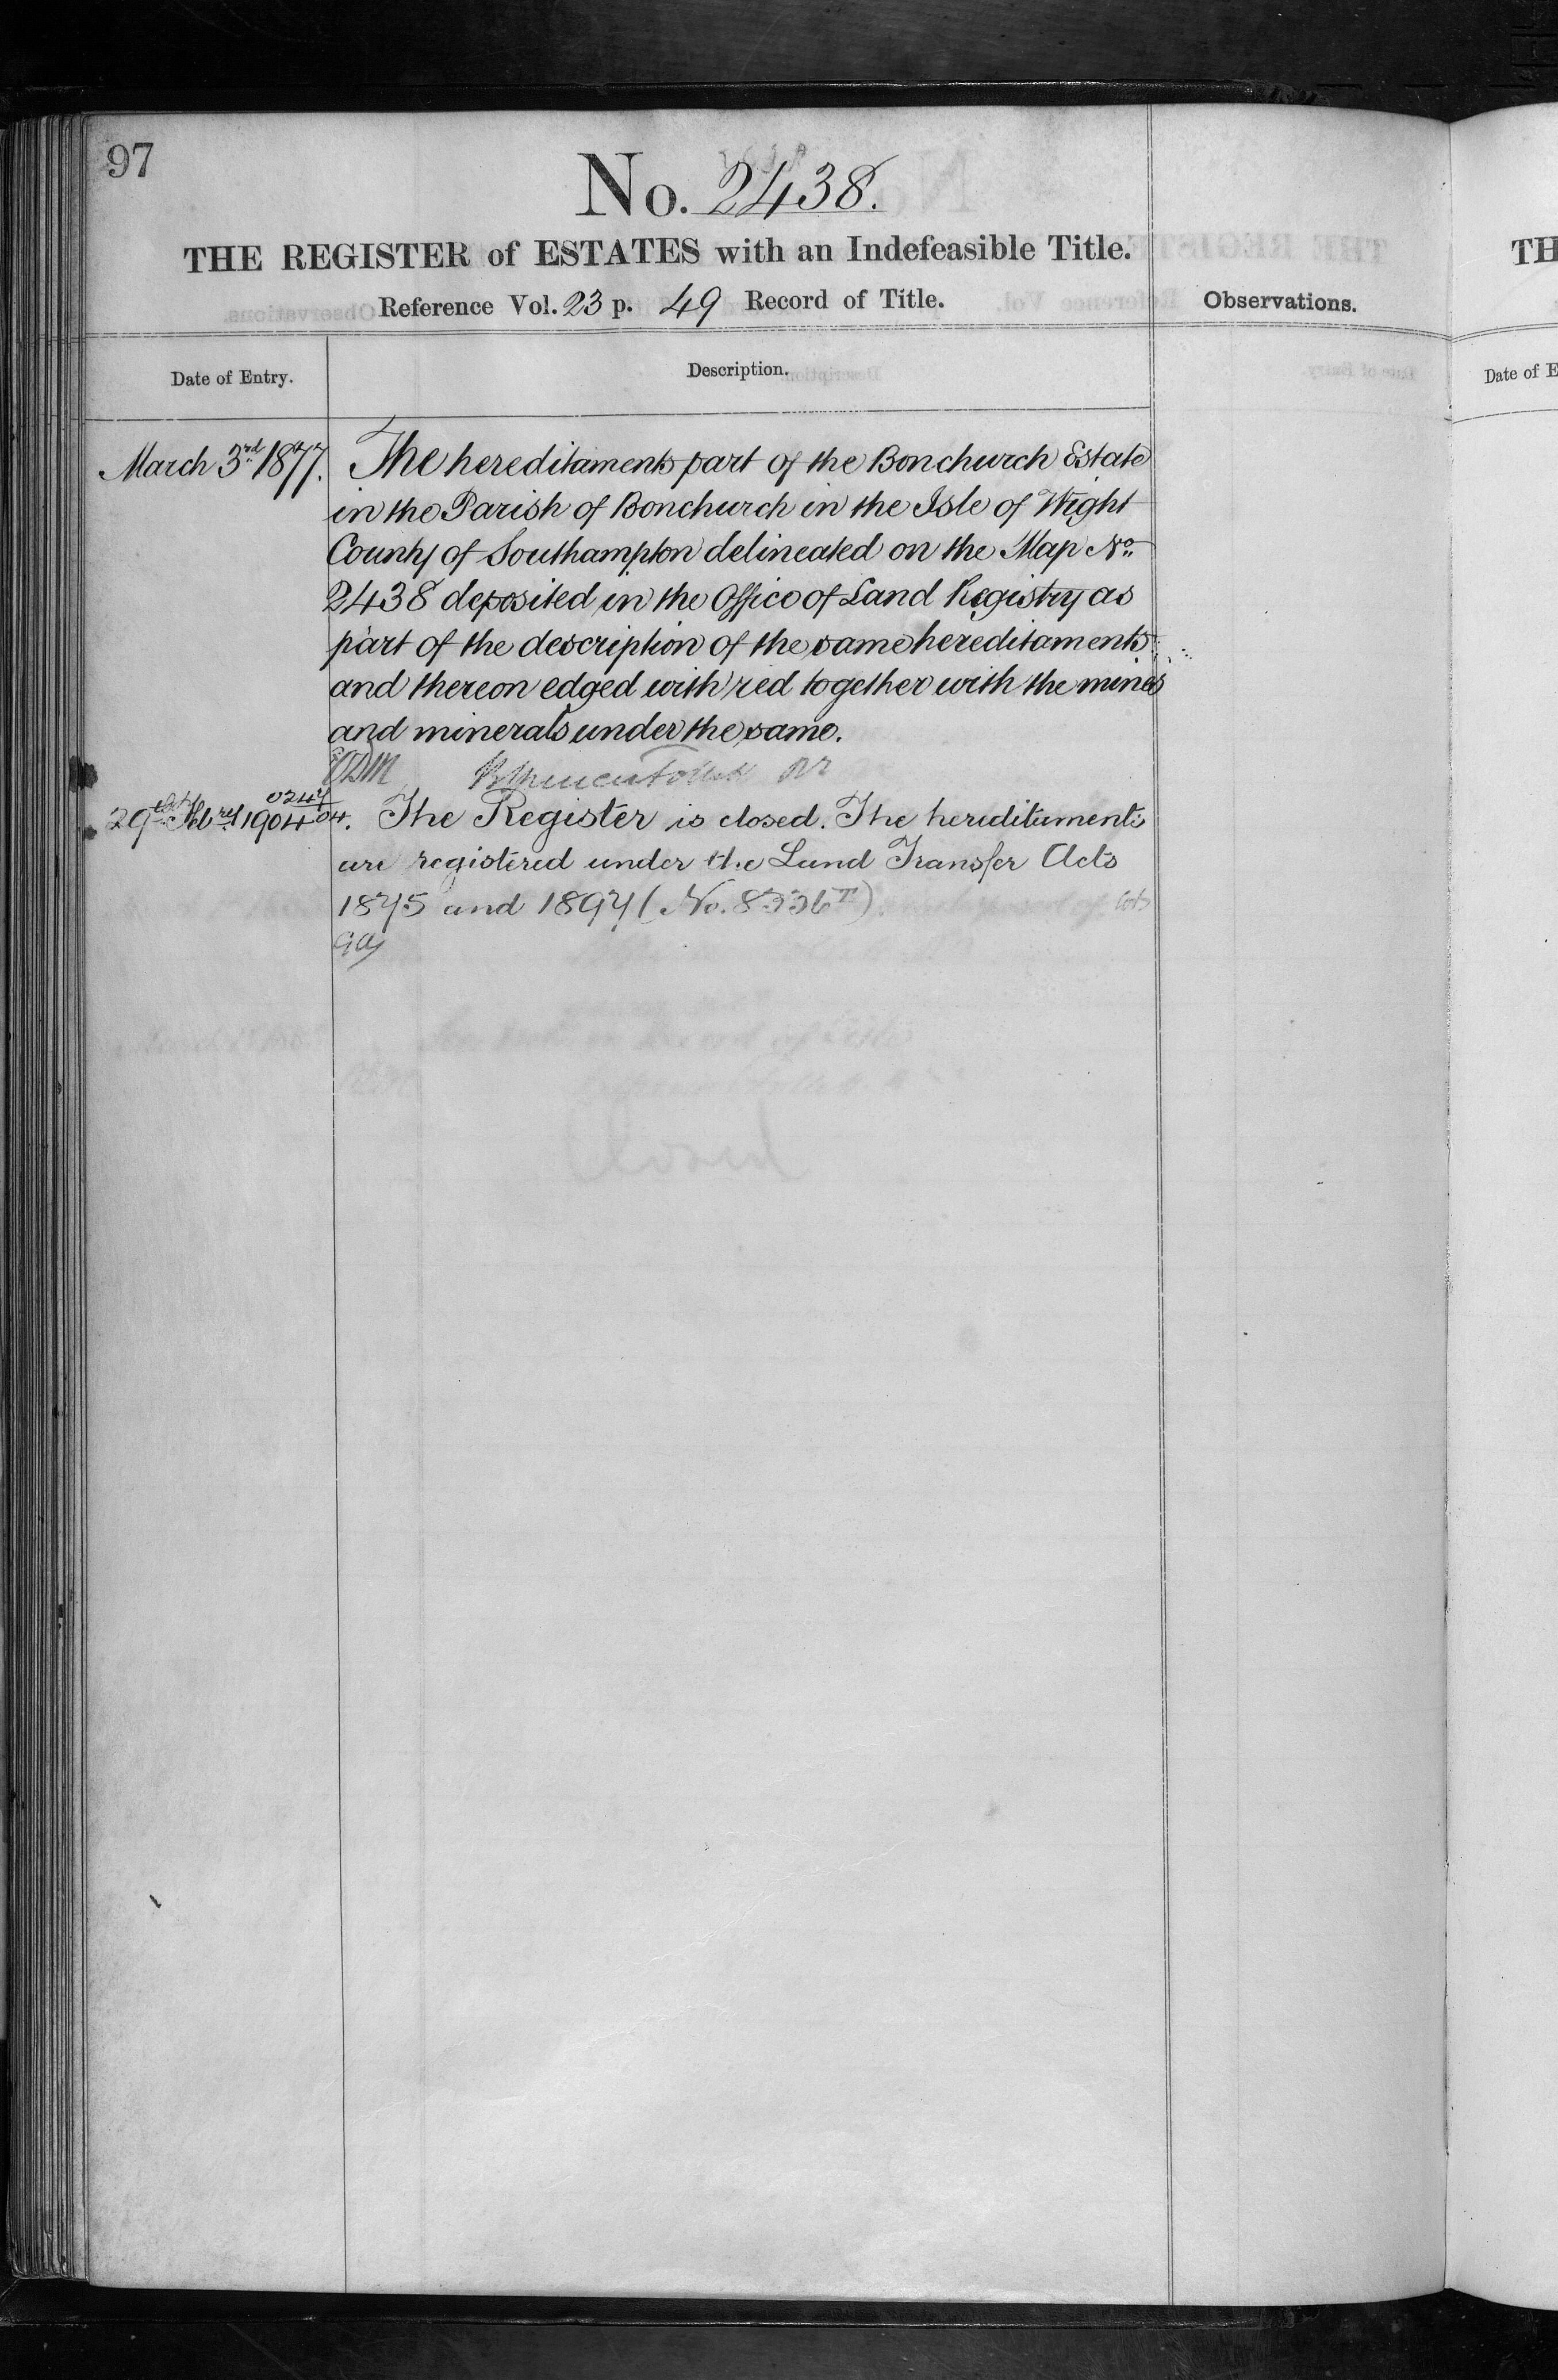 97
No. 2438.
THE REGISTER of ESTATES with an Indefeasible Title.
Reference Vol. 23 p. 49 Record of Title.
Observations.
Date of Entry.
Description.
March 3rd 1877. The hereditaments part of the Bonchurch Estate
in the Parish of Bonchurch in the Isle of Wight
County of Southampton delineated on the Map No.
2438 deposited in the Office of Land Registry as
part of the description of the same hereditaments
and thereon edged with red together with the mines
and minerals under the same.
0247
04
29th Febry 1904. The Register is closed. The hereditaments
are registered under the Land Transfer Acts
1875 and 1897 (No. 8336
Closed
TH
Date of E